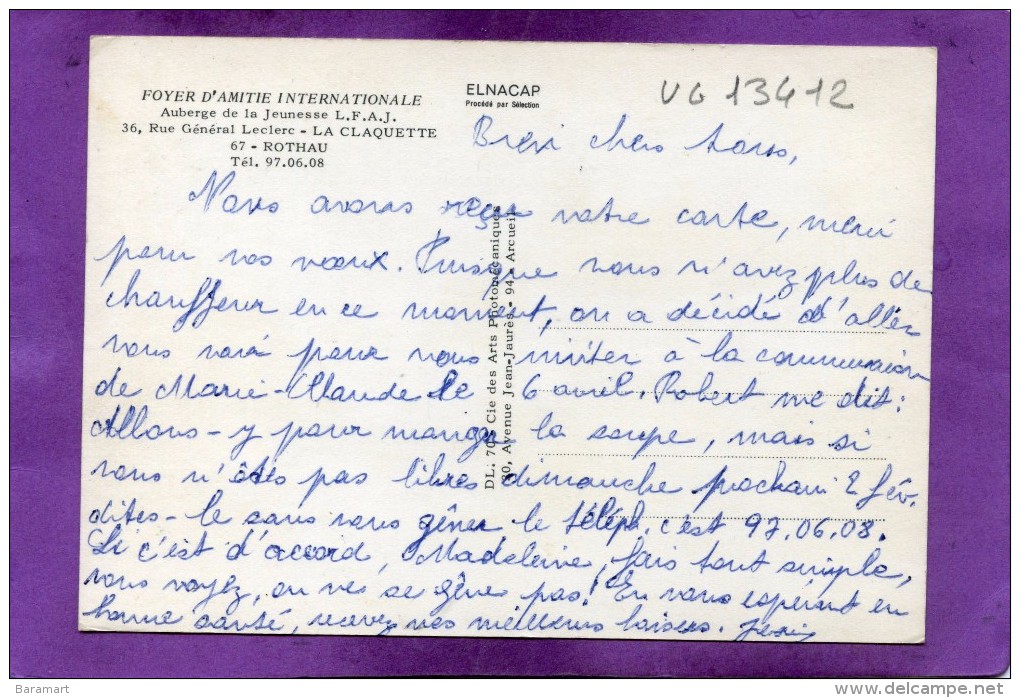 FOYER D'AMITIE INTERNATIONALE
Auberge de la Jeunesse L.F.A.J.
36, Rue Général Leclerc - LA CLAQUETTE
67 - ROTHAU
Tél. 97.06.08
ELNACAP
Procédé par Sélection
VG 13412
Bien chers tous,
Nous avons reçu votre carte, merci
pour vos vœux. Puisque vous n'avez plus de
chauffeur en ce moment, on a décidé d'aller
vous voir pour vous inviter à la communion
de Marie-Claude le 6 avril. Robert me dit :
Allons-y pour manger la soupe, mais si
vous n'êtes pas libres dimanche prochain 2 fév.
dites-le sans vous gêner le téléph. c'est 97.06.08.
Si c'est d'accord, Madeleine, fais tout simple,
vous voyez, on ne se gêne pas! En vous espérant en
bonne santé, recevez nos meilleurs baisers.
DL. 70 - Cie des Arts Photomécaniques
Avenue Jean-Jaurès - 94 - Arcueil
Baramart
www.delcampe.net